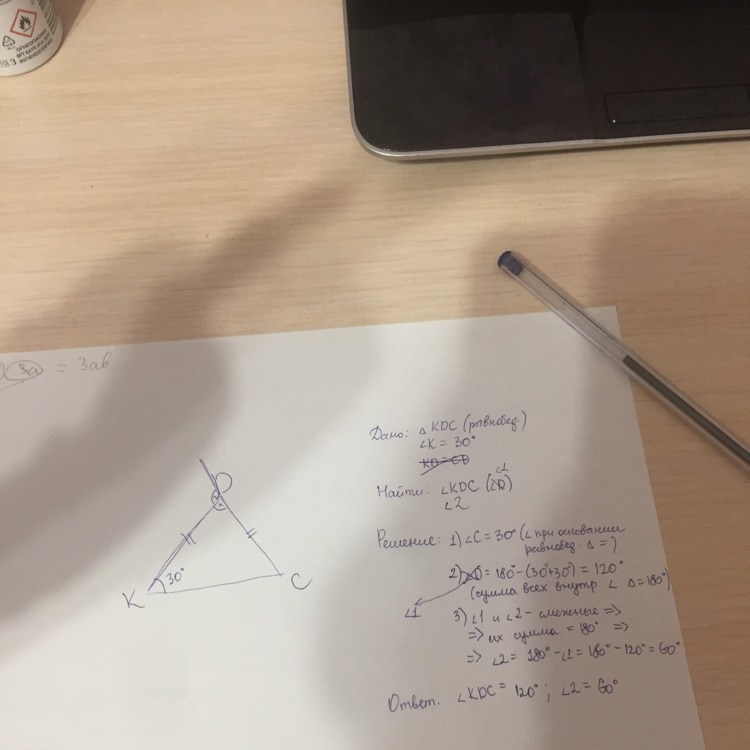 ОГНЕОПАСНО
3a = 3ab
D
30°
K
C
Дано: △ KDC (равнобед.)
∠K = 30°
KD = CD
∠1
Найти: ∠KDC (∠D)
∠2
Решение: 1) ∠C = 30° (∠ при основании
равнобед. △ =)
2) ∠D = 180° - (30° + 30°) = 120°
(сумма всех внутр ∠ △ = 180°)
∠1
3) ∠1 и ∠2 - смежные =>
=> их сумма = 180° =>
=> ∠2 = 180° - ∠1 = 180° - 120° = 60°
Ответ. ∠KDC = 120° ; ∠2 = 60°